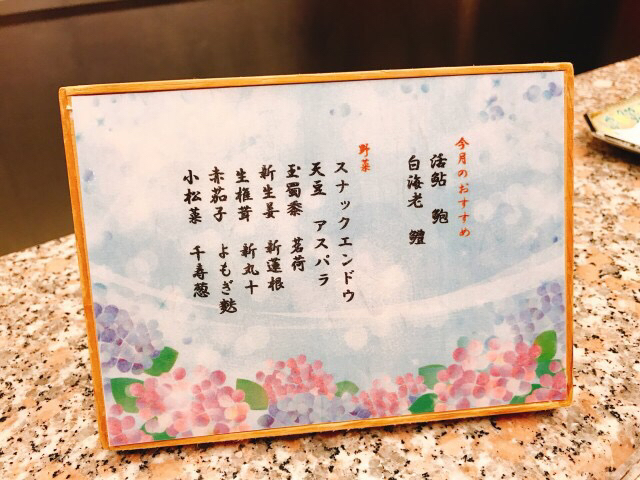 今月のおすすめ
活鮎 鮑
白海老 鱧
野菜
スナックエンドウ
天豆 アスパラ
玉蜀黍 茗荷
新生姜 新蓮根
生椎茸 新丸十
赤茄子 よもぎ麩
小松菜 千寿葱